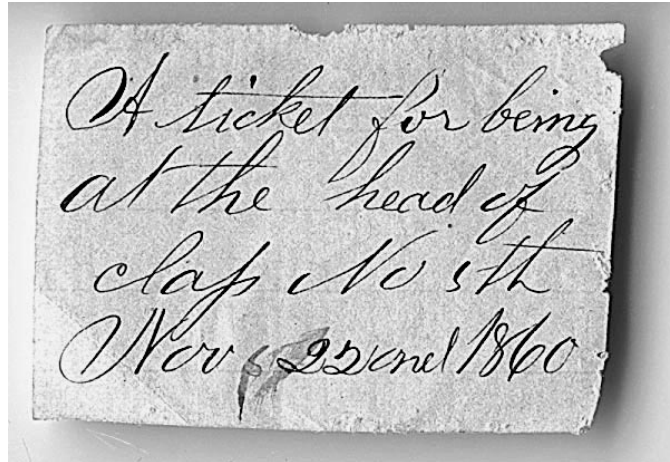 A ticket for being
at the head of
class No 5th
Nov 22nd 1860